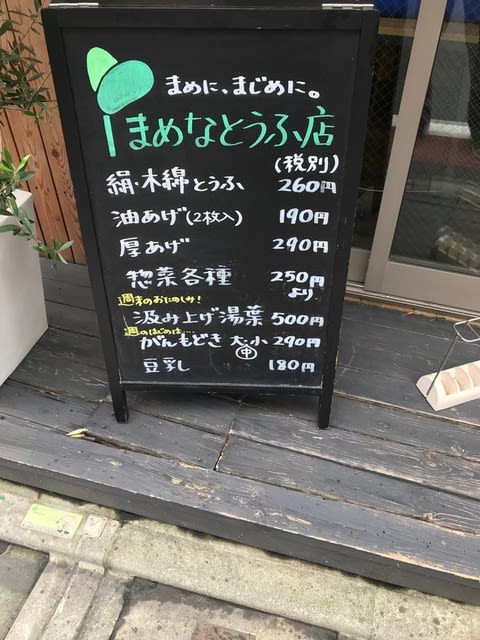 まめに、まじめに。
まめなとうふ店
(税別)
絹・木綿とうふ 260円
油あげ(2枚入) 190円
厚あげ 290円
惣菜各種 250円
より
週末のおたのしみ!
汲み上げ湯葉 500円
週のはじめは....
がんもどき 大・小 290円
中
豆乳 180円